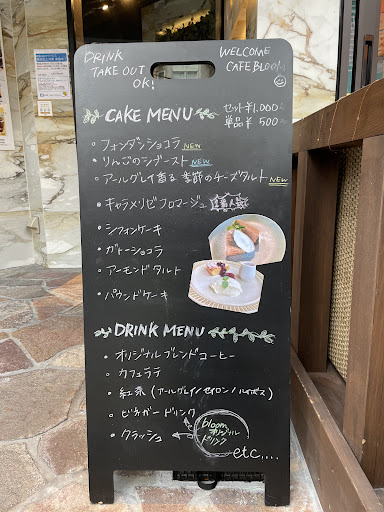 DRINK
TAKE OUT
OK!
WELCOME
CAFE BLOOM
CAKE MENU
セット¥1,000
単品¥500
・フォンダンショコラ NEW
・りんごのシブースト NEW
・アールグレイ香る季節のチーズタルト NEW
・キャラメリゼフロマージュ
・シフォンケーキ
・ガトーショコラ
・アーモンドタルト
・パウンドケーキ
DRINK MENU
・オリジナルブレンドコーヒー
・カフェラテ
・紅茶(アールグレイ/セイロン/ルイボス)
・ビネガードリンク
・クラッシュ
bloom
オリジナル
ドリンク
etc....